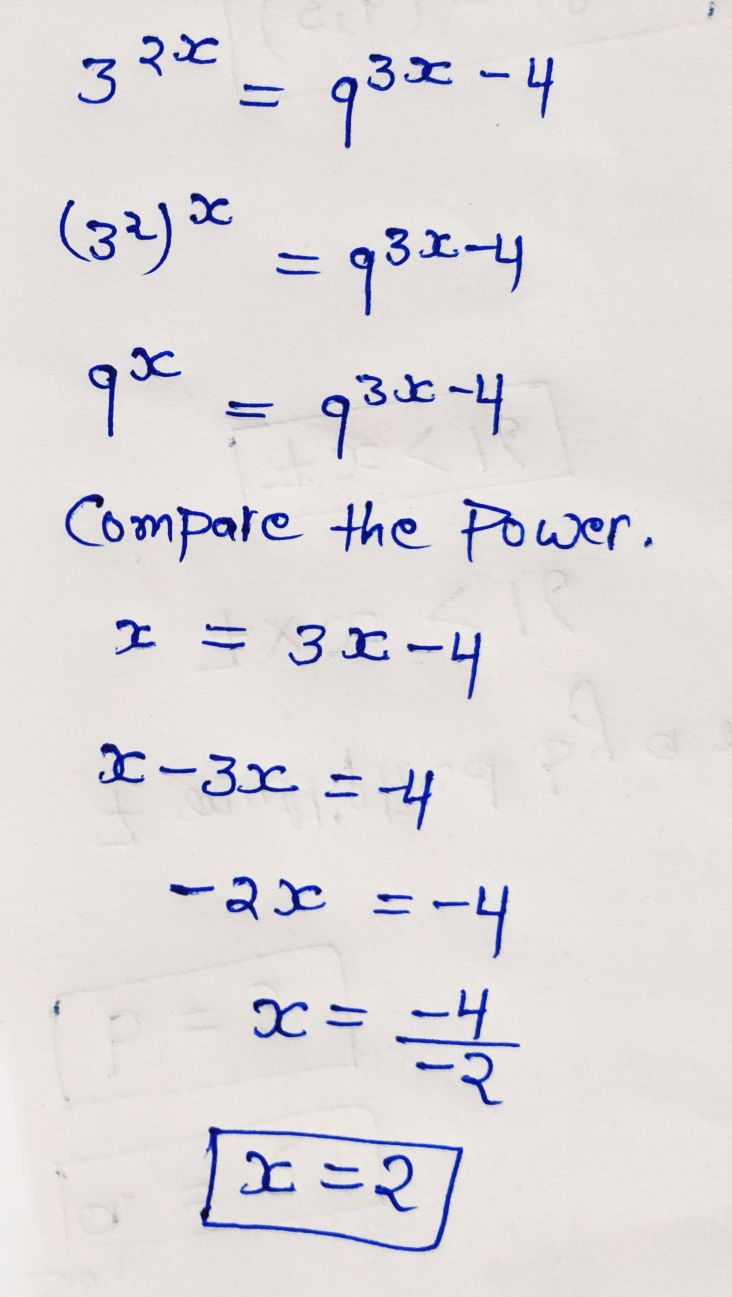 3^{2x} = 9^{3x-4}
(3^2)^x = 9^{3x-4}
9^x = 9^{3x-4}
Compare the Power.
x = 3x-4
x-3x = -4
-2x = -4
x = \frac{-4}{-2}
x = 2